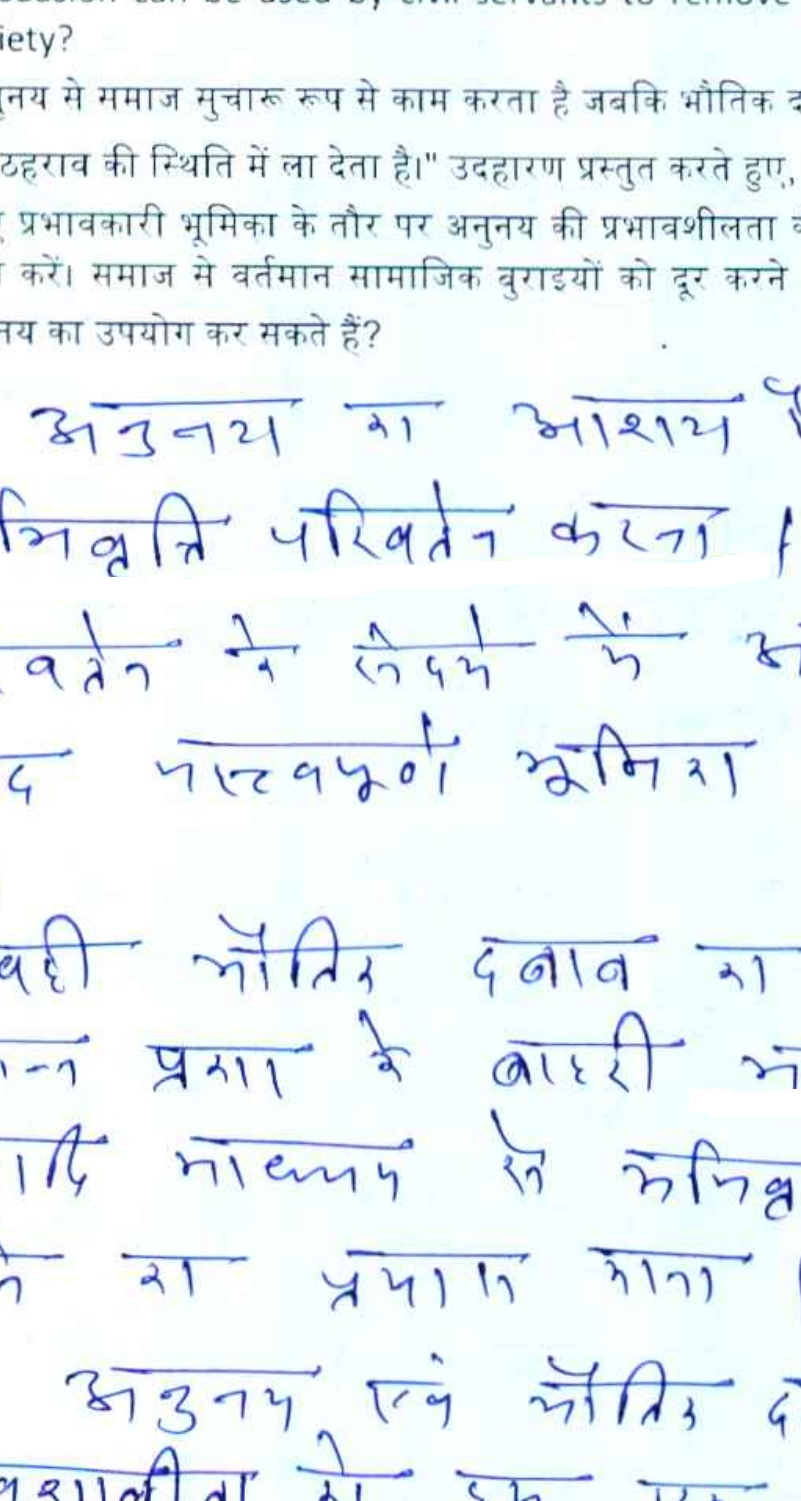 iety?
नुनय से समाज सुचारू रूप से काम करता है जबकि भौतिक द
ठहराव की स्थिति में ला देता है।" उदहारण प्रस्तुत करते हुए,
प्रभावकारी भूमिका के तौर पर अनुनय की प्रभावशीलता
करें। समाज से वर्तमान सामाजिक बुराइयों को दूर करने
नय का उपयोग कर सकते हैं?
अनुनय का आशय है
भिवृत्ति परिवर्तन करना।
वर्तन के संदर्भ में
द महत्वपूर्ण भूमिका
वही भौतिक दबाव का
प्रकार के बाहरी
आदि माध्यम से अभिवृ
का प्रयास करना
अनुनय एवं भौतिक द